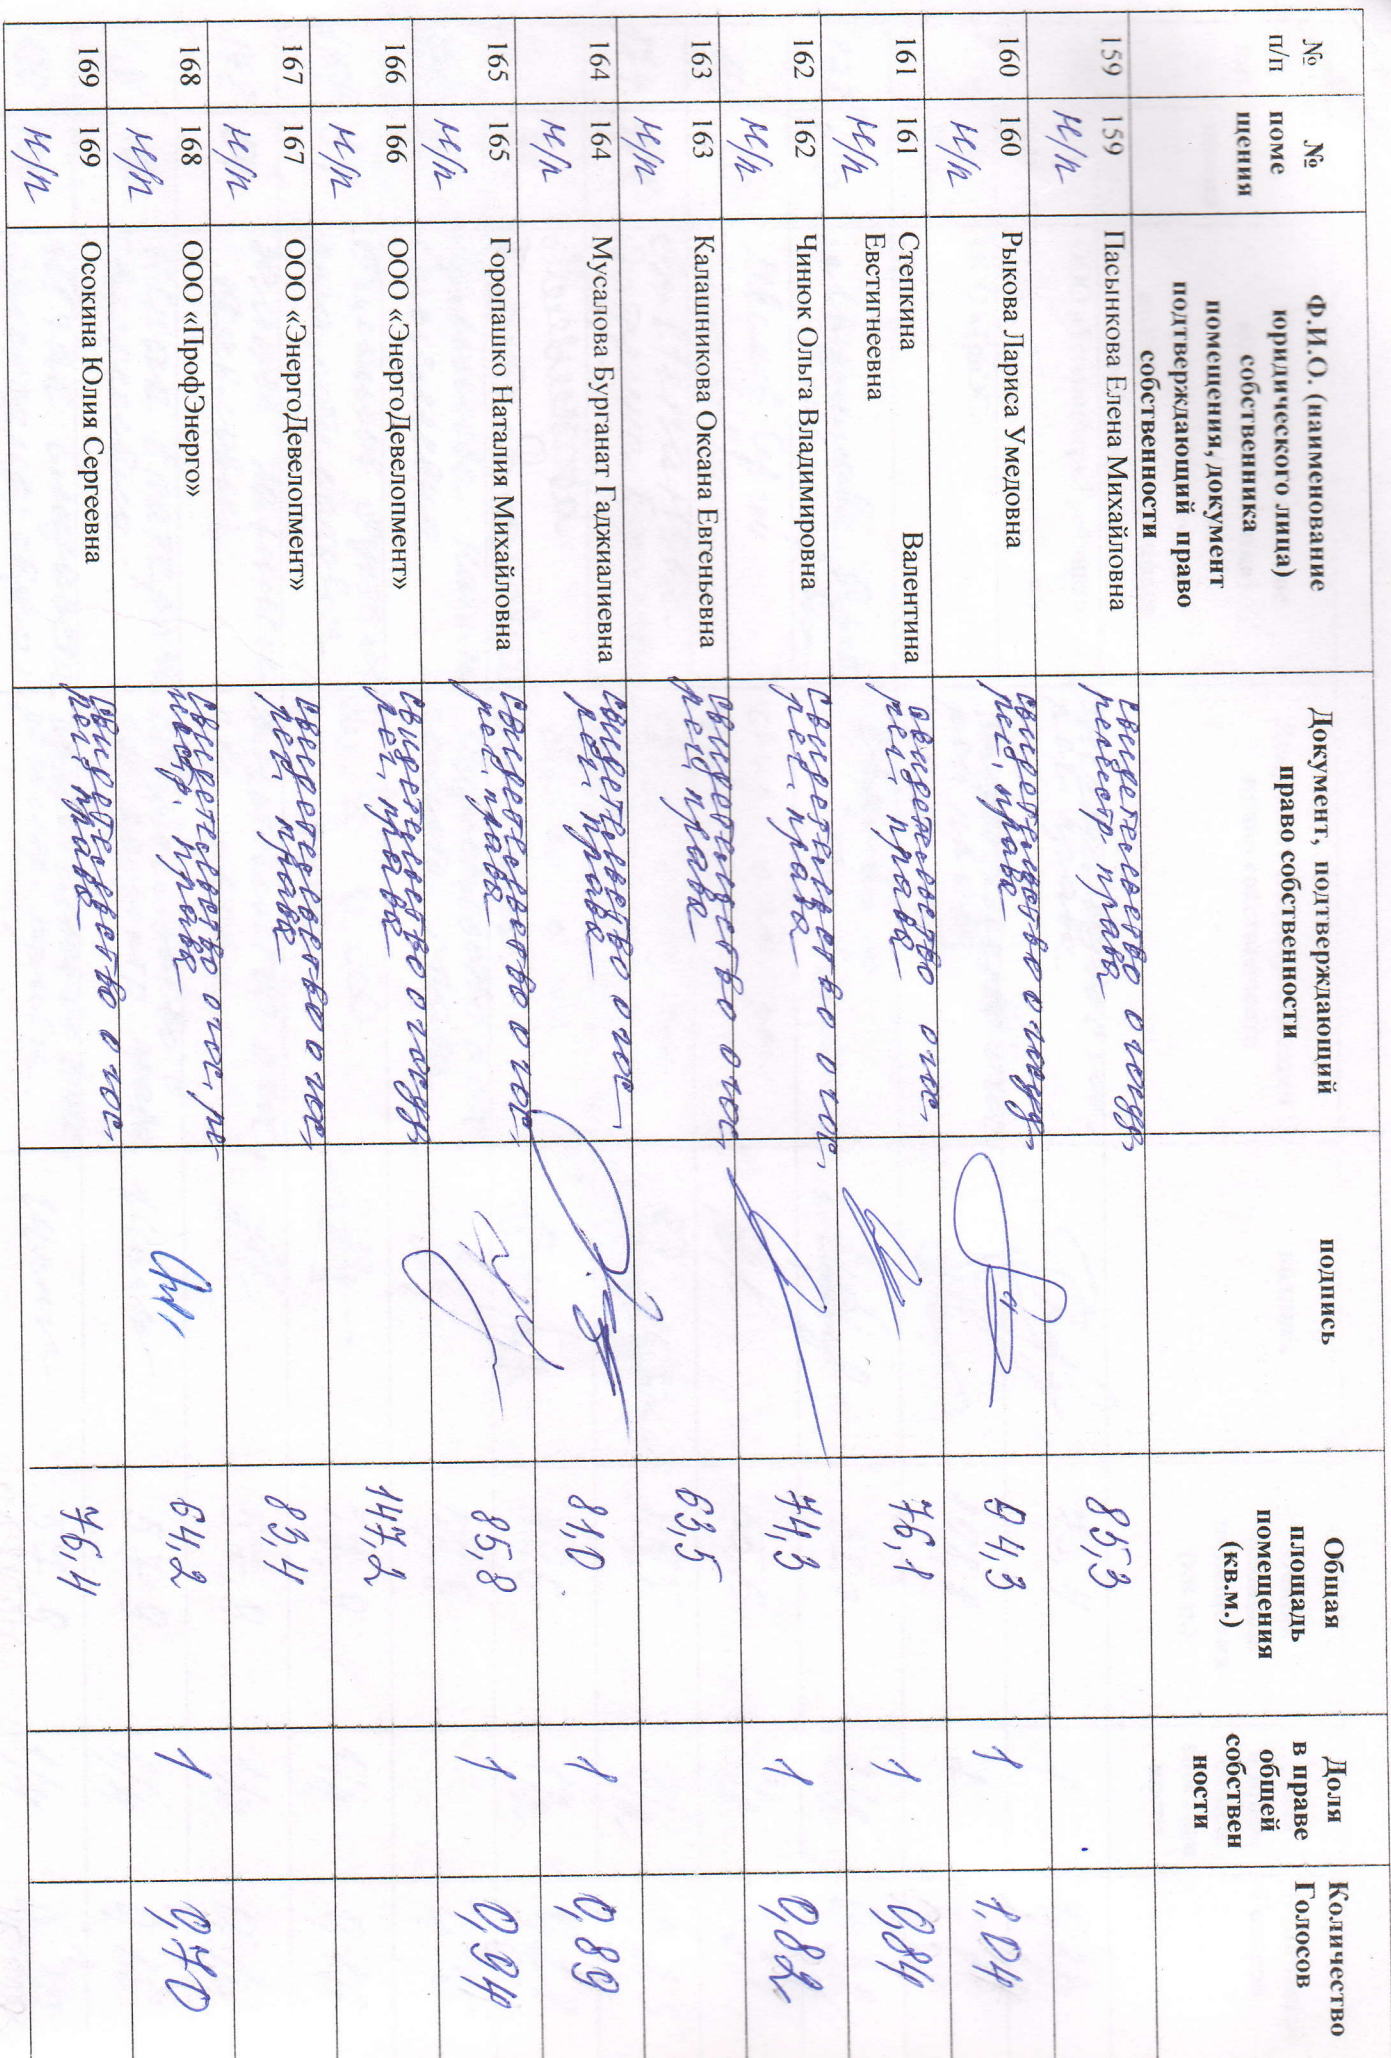 № п/п
№ поме щения
Ф.И.О. (наименование юридического лица) собственника помещения, документ подтверждающий право собственности
Документ, подтверждающий право собственности
подпись
Общая площадь помещения (кв.м.)
Доля в праве общей собствен ности
Количество Голосов
159 159 Пасынкова Елена Михайловна свидетельство о госуд. 85,3
н/п регистр. права
160 160 Рыкова Лариса Умедовна свидетельство о госуд. 94,3 1 1,04
н/п рег. права
161 161 Степкина Валентина свидетельство о гос. 76,1 1 0,84
н/п Евстигнеевна рег. права
162 162 Чинюк Ольга Владимировна свидетельство о гос. 74,3 1 0,82
н/п рег. права
163 163 Калашникова Оксана Евгеньевна свидетельство о гос. 63,5
н/п рег. права
164 164 Мусалова Бурганат Гаджиалиевна свидетельство о гос. 81,0 1 0,89
н/п рег. права
165 165 Горопашко Наталия Михайловна свидетельство о гос. 85,8 1 0,94
н/п рег. права
166 166 ООО «ЭнергоДевелопмент» свидетельство о госуд. 147,2
н/п рег. права
167 167 ООО «ЭнергоДевелопмент» свидетельство о гос. 83,4
н/п рег. права
168 168 ООО «ПрофЭнерго» свидетельство о гос. ре- 64,2 1 0,70
н/п гистр. права
169 169 Осокина Юлия Сергеевна свидетельство о гос. 76,4
н/п рег. права